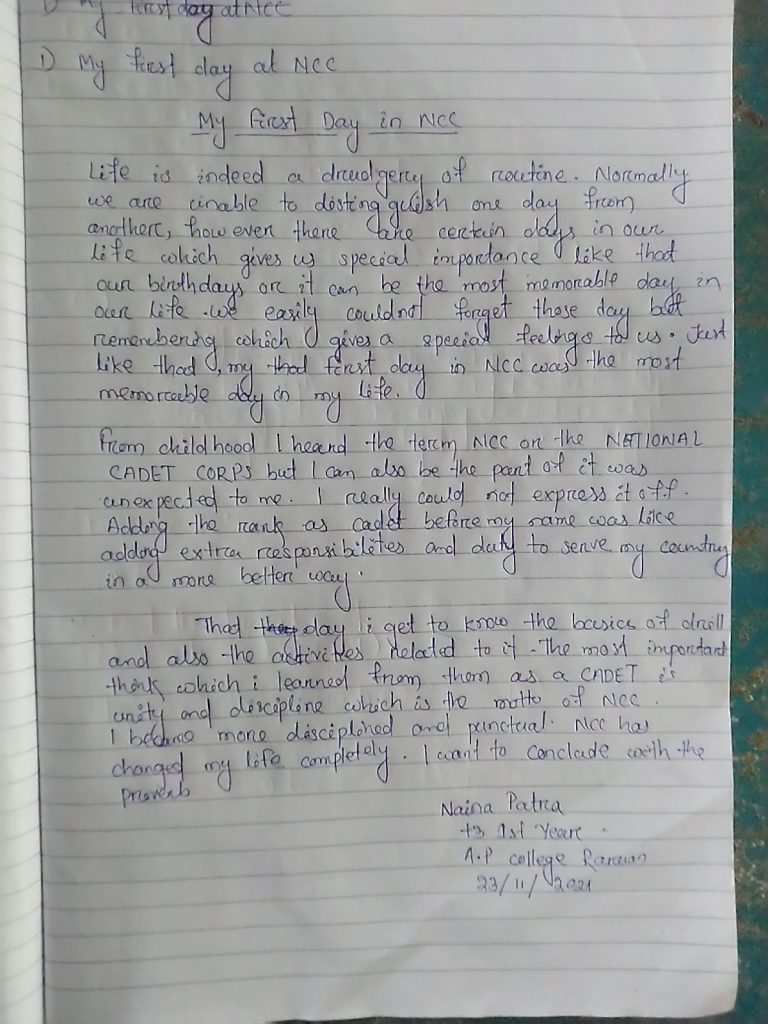 1) My first day at NCC
1) My first day at NCC
My First Day in NCC
Life is indeed a drudgery of routine. Normally
we are unable to distinguish one day from
another, however there are certain days in our
life which gives us special importance like that
our birthdays or it can be the most memorable day in
our life. we easily couldnot forget those day but
remembering which gives a special feelings to us. Just
like that, my that first day in NCC was the most
memorable day in my life.
From childhood I heard the term NCC or the NATIONAL
CADET CORPS but I can also be the part of it was
unexpected to me. I really could not express it off.
Adding the rank as cadet before my name was like
adding extra responsibilities and duty to serve my country
in a more better way.
That they day i get to know the basics of drill
and also the activities related to it. The most important
think which i learned from them as a CADET is
unity and discipline which is the motto of NCC.
I became more disciplined and punctual. NCC has
changed my life completely. I want to conclude with the
proverb
Naina Patra
+3 1st Year.
A.P college Raruan
23/11/2021